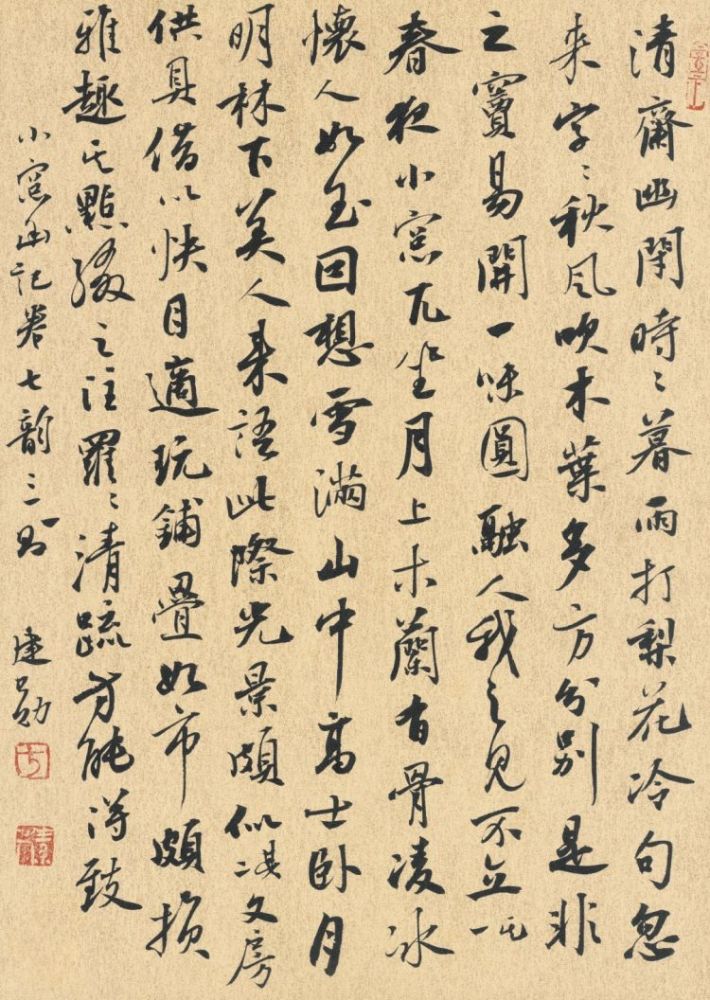 清齋幽閉時〻暮雨打梨花冷句忽
来字〻秋風吹木葉多方分别是非
之竇易開一味圓融人我之見不立其一
春夜小窓兀坐月上木蘭有骨凌冰
懷人如玉回想雪滿山中高士卧月
明林下美人来語此際光景頗似其二文房
供具借以快目適玩鋪疊如市頗損
雅趣其點綴之注羅〻清疏方能得致
小窓幽记卷七韵三则 建勋